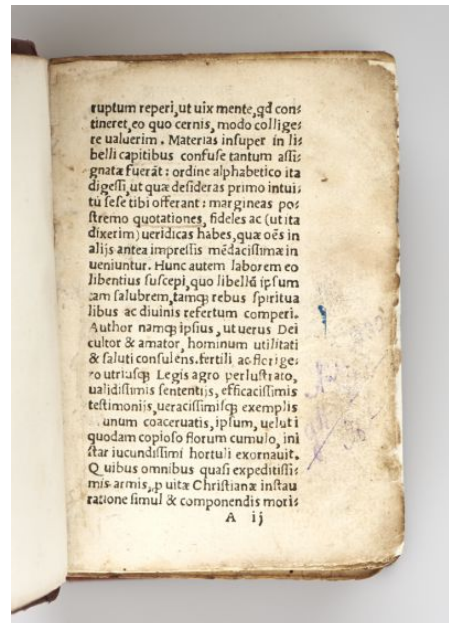 ruptum reperi, ut uix mente, qd con⸗
tineret, eo quo cernis, modo collige⸗
re ualuerim. Materias insuper in li⸗
belli capitibus confuse tantum assi⸗
gnatæ fuerāt: ordine alphabetico ita
digessi, ut quæ desideras primo intui⸗
tū sese tibi offerant: margineas po⸗
stremo quotationes, fideles ac (ut ita
dixerim) ueridicas habes, quæ oēs in
alijs antea impressis mēdacissimæ in
ueniuntur. Hunc autem laborem eo
libentius suscepi, quo libellū ipsum
tam salubrem, tamq; rebus spiritua
libus ac diuinis refertum comperi.
Author namq; ipsius, ut uerus Dei
cultor & amator, hominum utilitati
& saluti consulens, fertili ac florige⸗
ro utriusq; Legis agro perlustrato,
ualidissimis sententijs, efficacissimis
testimonijs, ueracissimisq; exemplis
unum coaceruatis, ipsum, uelut i
quodam copioso florum cumulo, ini
star iucundissimi hortuli exornauit.
Quibus omnibus quasi expeditissi⸗
mis armis, p uitæ Christianæ instau
ratione simul & componendis moris⸗
A ij